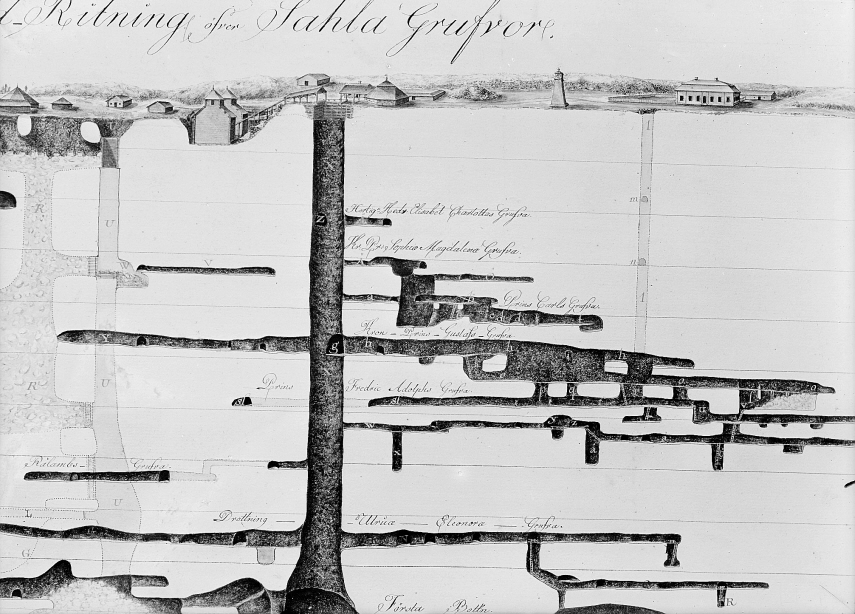 Ritning öfver Sahla Grufvor.
Hertig: Hedv: Elisabet Charlottas Grufva.
Kr. Pr: Sophiæ Magdalenæ Grufva.
Prins Carls Grufva.
Kron - Prins - Gustafs - Grufva
Prins Fredric Adolphs Grufva.
Rålambs - Grufva.
Drottning - Ulricæ - Eleonoræ - Grufva.
Första Bottn.
R
U
Z
Y
m
n
l
l
Y
g
h
R
U
U
L
G
R